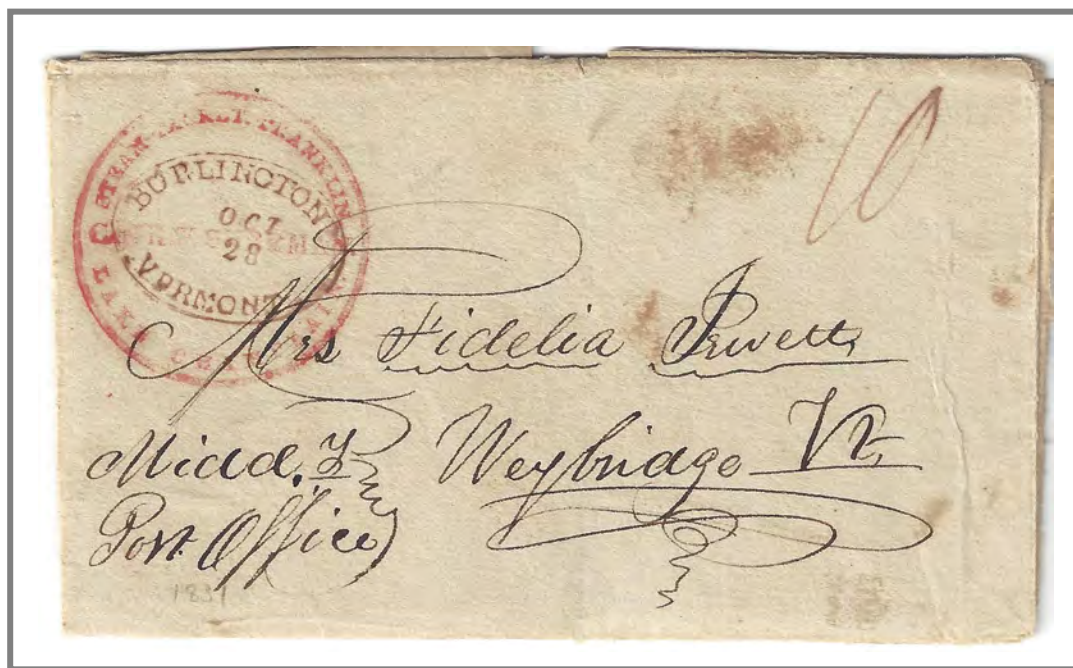 STEAM-PACKET. FRANKLIN
BURLINGTON
OCT
28
VERMONT
LAKE CHAMPLAIN
10
Mrs Fidelia Jewett
Midd.y Weybridge Vt.
Post Office
1831